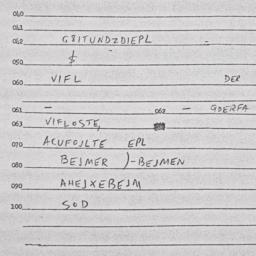 040
041
042 G8ITUNDZDIEPL
050
060 VIFL DER
061 – 062 – GDERFA
063 VIFLOSTE,
070 ACUFOJLTE EPL
080 BEJMER )-BEJMEN
090 AHEJXEBEJM
100 SOD